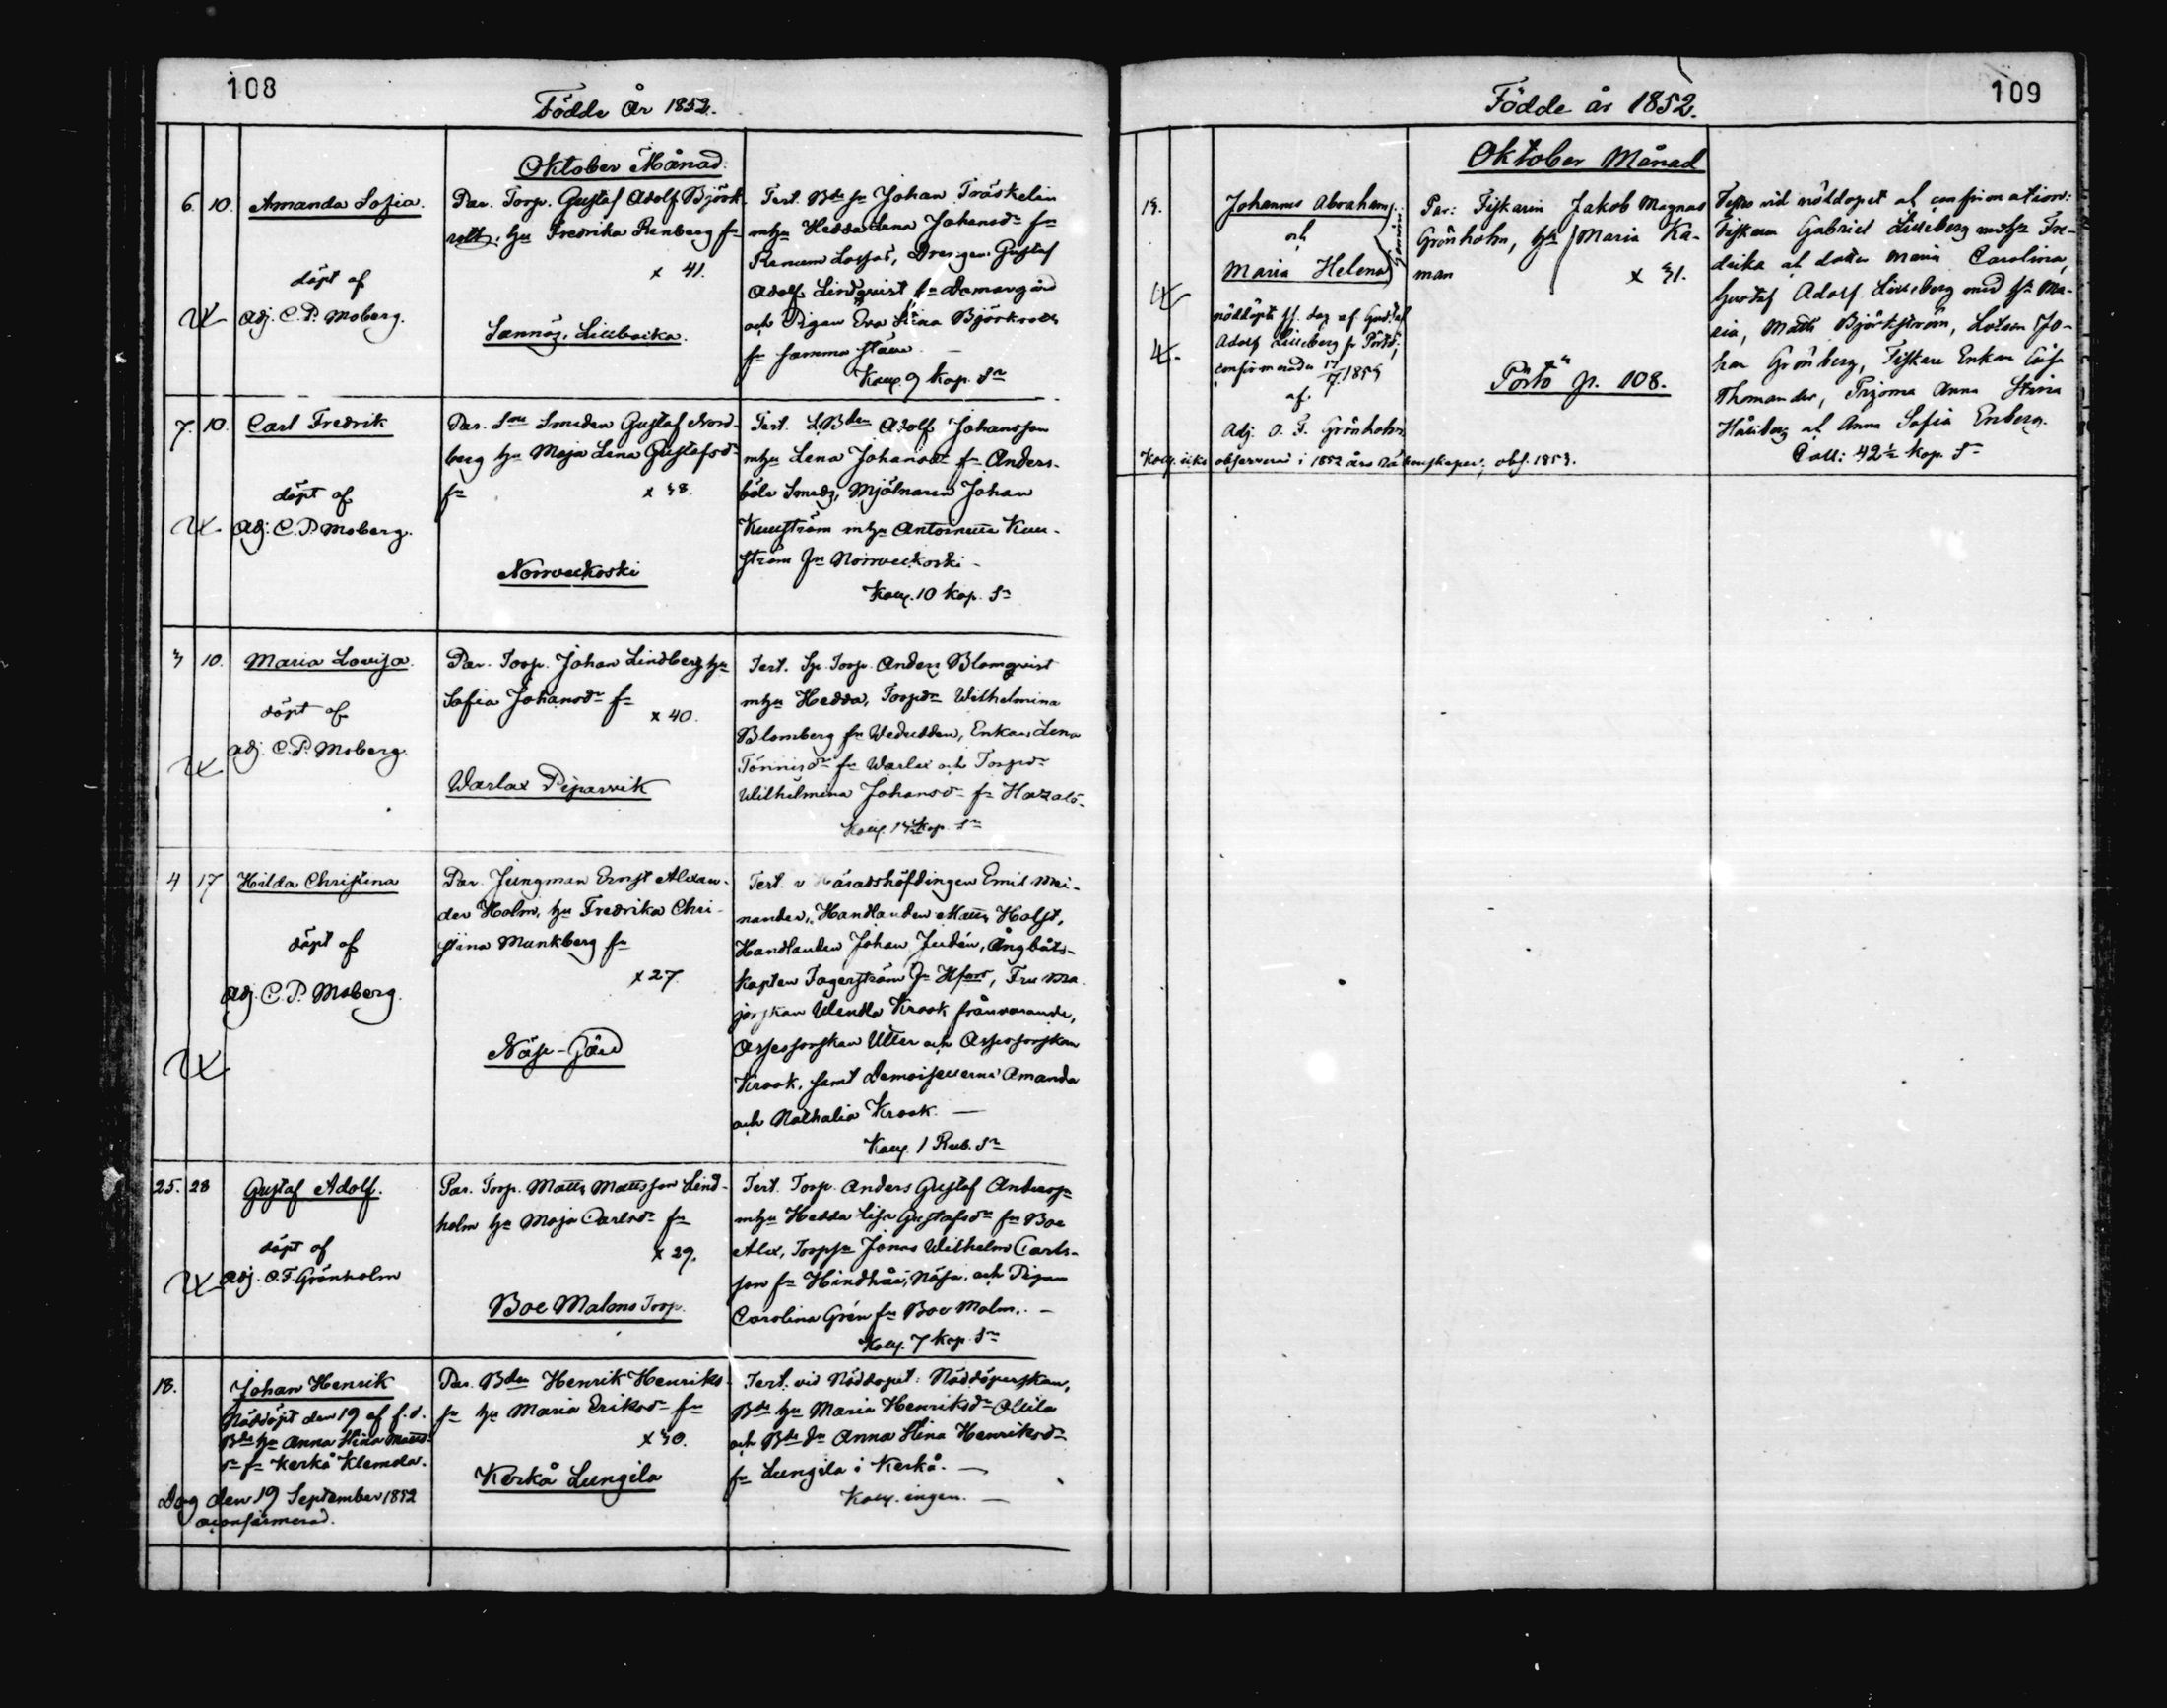 108
Födde År 1852.
Oktober Månad.
6. 10. Amanda Sofia.
döpt af
Adj. C. P. Moberg.
Par. Torp. Gustaf Adolf Björk-
hu Fredrika Renberg fn
x 41.
Sannäs, Lillboika.
Test. Bde sn Johan Träskelin
mhu Hedda Lena Johansdr fn
Drengen Gustaf
Adolf Lindqvist fn Domargård
och Pigan Eva Stina
fn samma ställe
Koll. 9 kop. Sr
7. 10. Carl Fredrik
döpt af
Adj. C. P. Moberg.
Par. Smeden Gustaf Nord-
berg hu Maja Lena Gustafsdr
fn x 38.
Norrveckoski
Test. Adolf Johansson
mhu Lena Johansdr fn Anders-
böle Smeds, Mjölnaren Johan
Kullström mhu Antoinetta Kull-
ström fn Norrveckoski
Koll. 10 kop. Sr
3 10. Maria Lovisa.
döpt af
adj. C. P. Moberg.
Par. Torp. Johan Lindberg hu
Sofia Johansdr fn
x 40.
Warlax Piparvik
Test. Torp. Anders Blomqvist
mhu Hedda, Torpdr Wilhelmina
Blomberg fn Wedudden, Enkan Lena
Tönnisdr fn Warlax och Torpdr
Wilhelmina Johansdr fn
Koll. kop. Sr
4 17 Hilda Christina
döpt af
Adj. C. P. Moberg.
Par. Jungman Ernst Alexan-
der Holm, hu Fredrika Chri-
stina Munkberg fn
x 27.
Näse-Gård
Test. v Häradshöfdingen Emil Mei-
nander, Handlanden Matts Holst,
Handlanden Johan Judén, Ångbåts-
kapten Fagerström fn Hfors, Fru Ma-
jorskan Wendla Krook frånvarande,
Assessorskan Utter och Assessorskan
Krook, samt Demoisellerna Amanda
och Nathalia Krook. —
Koll. 1 Rub. Sr
25. 28 Gustaf Adolf.
döpt af
Adj. O. F. Grönholm
Par. Torp. Matts Mattsson Lind-
holm hu Maja Carlsdr fn
x 29.
Boe Malms Torp.
Test. Torp. Anders Gustaf Andersn
mhu Hedda Lisa Gustafsdr fn Boe
Alex, Torpsn Jonas Wilhelm Carls-
son fn Hindhår, Näse, och Pigan
Carolina Grén fn Boe Malm. —
Koll. 7 kop. Sr
18. Johan Henrik
Nöddöpt den 19 af f.d.
Bde hu Anna Stina Matts-
dr fn Kerkå Klemola.
Dog den 19 September 1852
oconfirmerad.
Par. Bden Henrik Henriks-
sn hu Maria Eriksdr fn
x 30.
Kerkå Lungila
Test. vid Nöddopet: Nöddöperskan,
Bde hu Maria Henriksdr Ollila
och Bde dr Anna Stina Henriksdr
fn Lungila i Kerkå. —
Koll. ingen. —
109
Födde år 1852.
Oktober Månad
19. Johannes Abraham
och
Maria Helena
nöddöpte s. dag af Gustaf
Adolf Lilleberg fr Pörtö;
confirmerade 1853
af
Adj. O. F. Grönholm
Par: Fiskaren Jakob Magnus
Grönholm, hu Maria Ka-
man x 31.
Pörtö p. 108.
Testes vid nöddopet at confirmation:
Fiskaren Gabriel Lilleberg med hu Fre-
drika at dotter Maria Carolina,
Gustaf Adolf Lilleberg med hu Ma-
ria, Matts Björkström, Lotsen Jo-
han Grönberg, Fiskare Enkan
Thomander, Pigorna Anna Stina
Hällberg at Anna Sofia Enberg.
Coll: 42½ kop. Sr
Koll. icke observerad i 1852 års räkenskaper, obs. 1853.